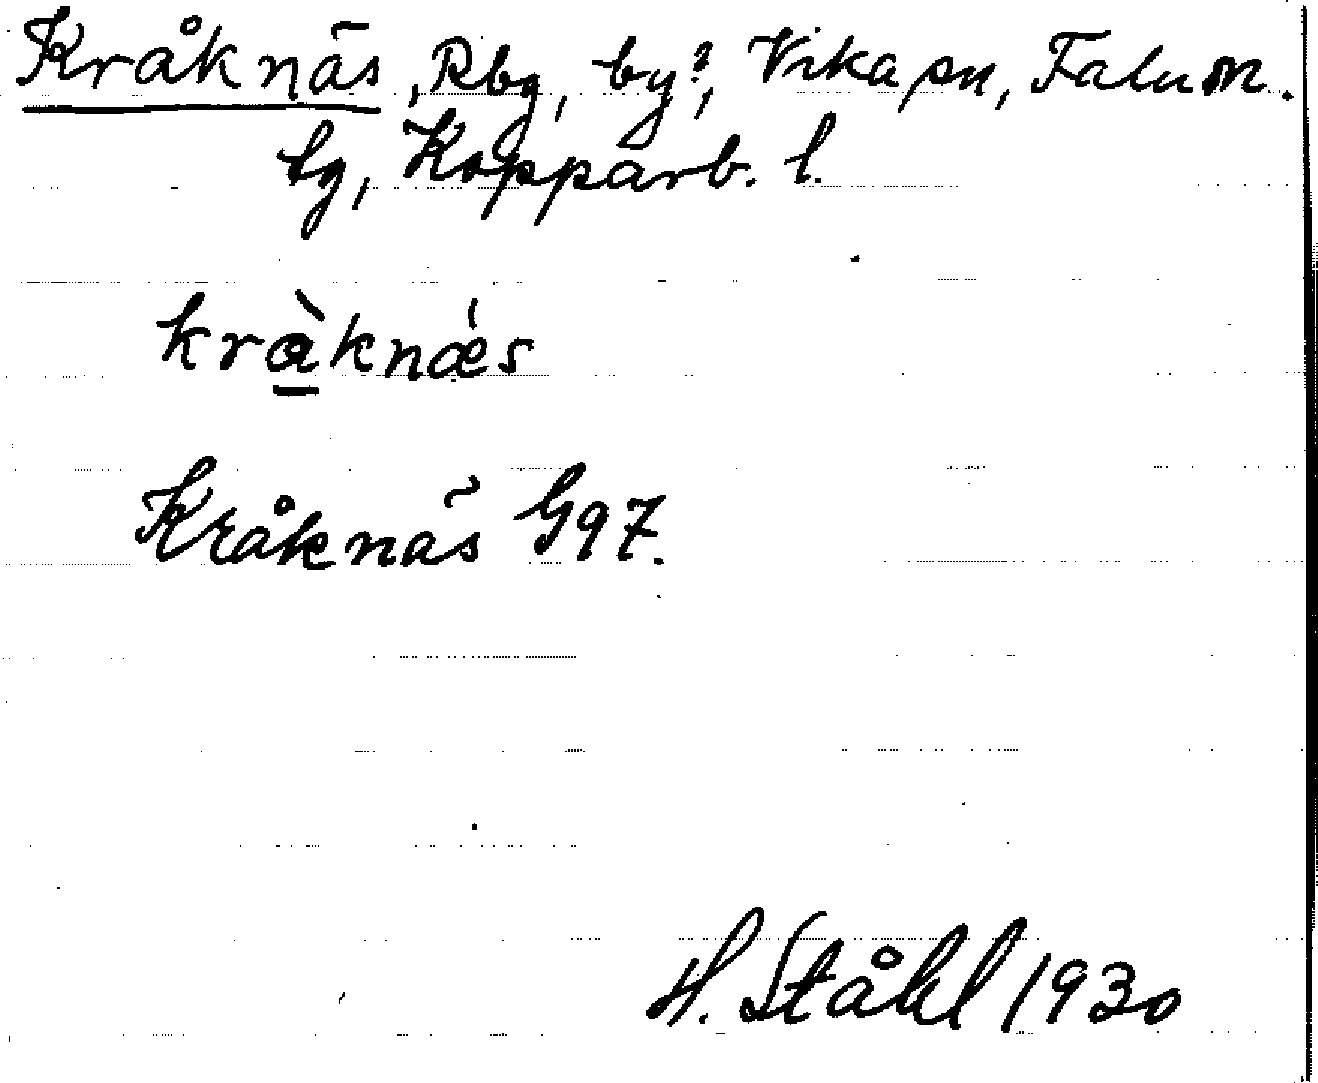 Kråknäs, Rbg, by?, Vika sn, Falu n.
tg, Kopparb. l.
kràknǽs
Kråknäs G97.
H. Ståhl 1930